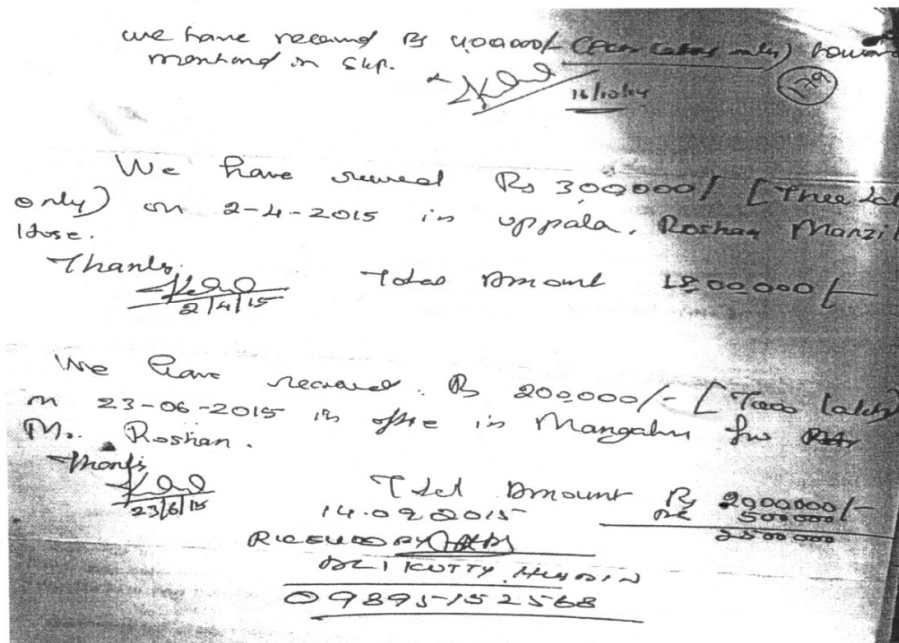 we have received Rs 400000/- (Four Lakhs only) toward
mentiond in Slip.
16/10/14
179
We have received Rs 300000/- [Three Lak
only) on 2-4-2015 in uppala, Roshan Manzil
Hose.
Thanks,
2/4/15
Total Amount 1800000/-
We have received. Rs 200000/- [Two lakhs)
on 23-06-2015 in office in Mangalur
M. Roshan.
Thanks
23/6/15
Total Amount Rs 2000000/-
14.09.2015 500000
2500000
ALI KUTTY
09895152568